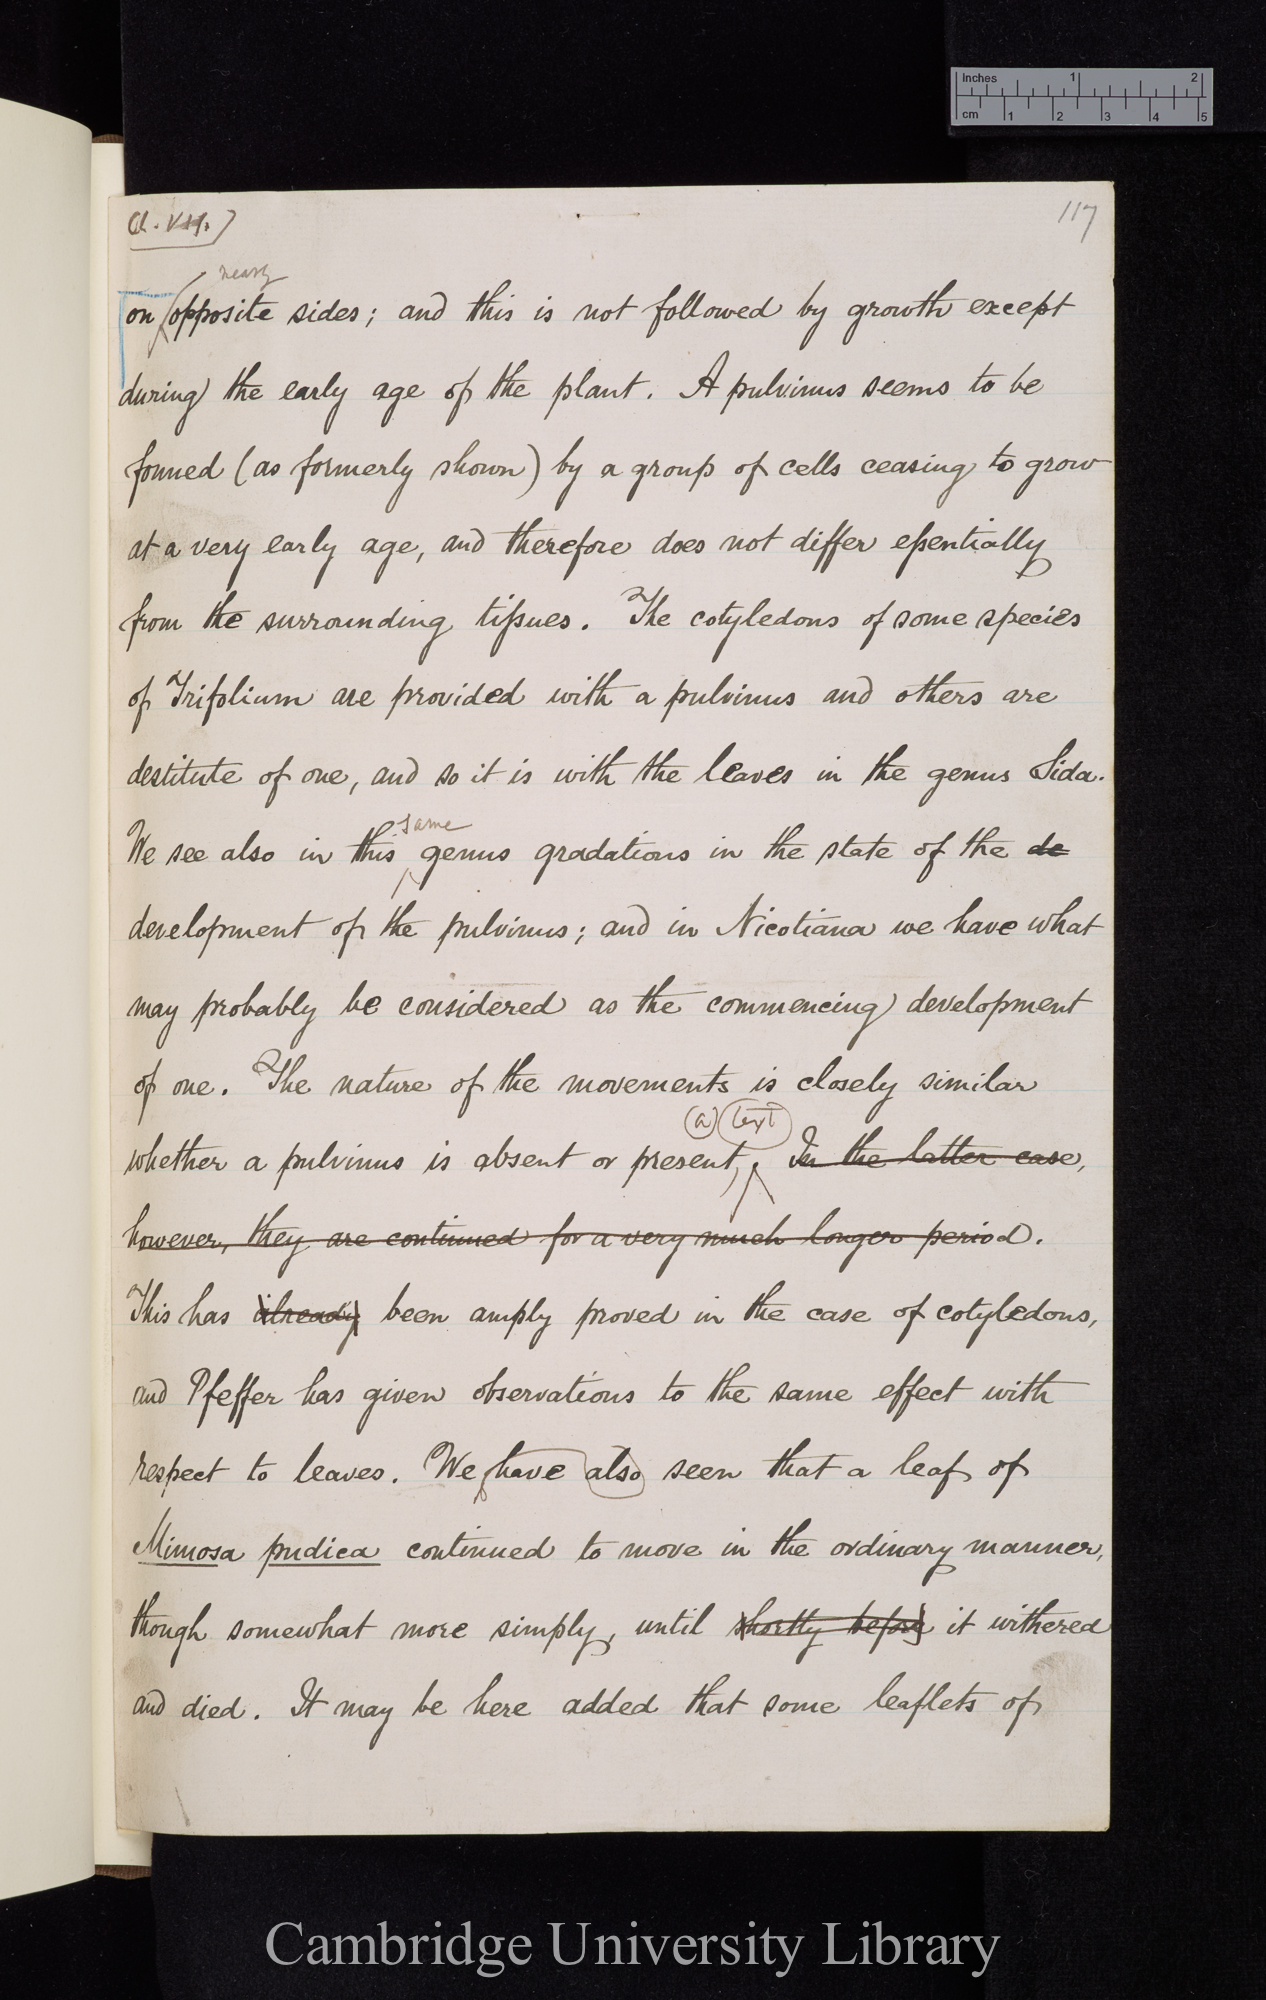 Inches 1 2
cm 1 2 3 4 5
Ch. VII.
117
nearly
on opposite sides; and this is not followed by growth except
during the early age of the plant. A pulvinus seems to be
formed (as formerly shown) by a group of cells ceasing to grow
at a very early age, and therefore does not differ eſsentially
from the surrounding tiſsues. The cotyledons of some species
of Trifolium are provided with a pulvinus and others are
destitute of one, and so it is with the leaves in the genus Sida.
same
We see also in this genus gradations in the state of the de
development of the pulvinus; and in Nicotiana we have what
may probably be considered as the commencing development
of one. The nature of the movements is closely similar
(a) text
whether a pulvinus is absent or present,. In the latter case,
however, they are continued for a very much longer period.
This has already been amply proved in the case of cotyledons,
and Pfeffer has given observations to the same effect with
respect to leaves. We have also seen that a leaf of
Mimosa pudica continued to move in the ordinary manner,
though somewhat more simply, until shortly before it withered
and died. It may be here added that some leaflets of
Cambridge University Library